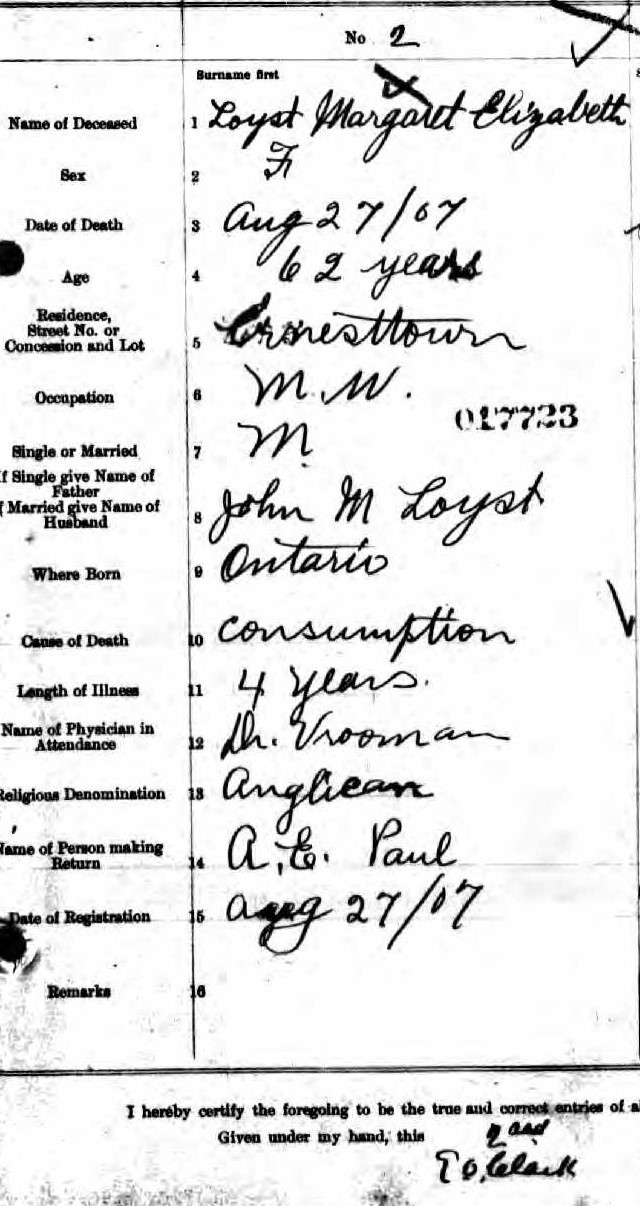 No 2
Surname first
Name of Deceased 1 Loyst Margaret Elizabeth
Sex 2 F
Date of Death 3 Aug 27/07
Age 4 62 years
Residence,
Street No. or
Concession and Lot 5 Ernesttown
Occupation 6 M.W.
017723
Single or Married 7 M
If Single give Name of
Father
If Married give Name of
Husband 8 John M Loyst
Where Born 9 Ontario
Cause of Death 10 Consumption
Length of Illness 11 4 years.
Name of Physician in
Attendance 12 Dr. Vrooman
Religious Denomination 13 Anglican
Name of Person making
Return 14 A.E. Paul
Date of Registration 15 Aug 27/07
Remarks 16
I hereby certify the foregoing to be the true and correct entries of
Given under my hand, this 2
Clark